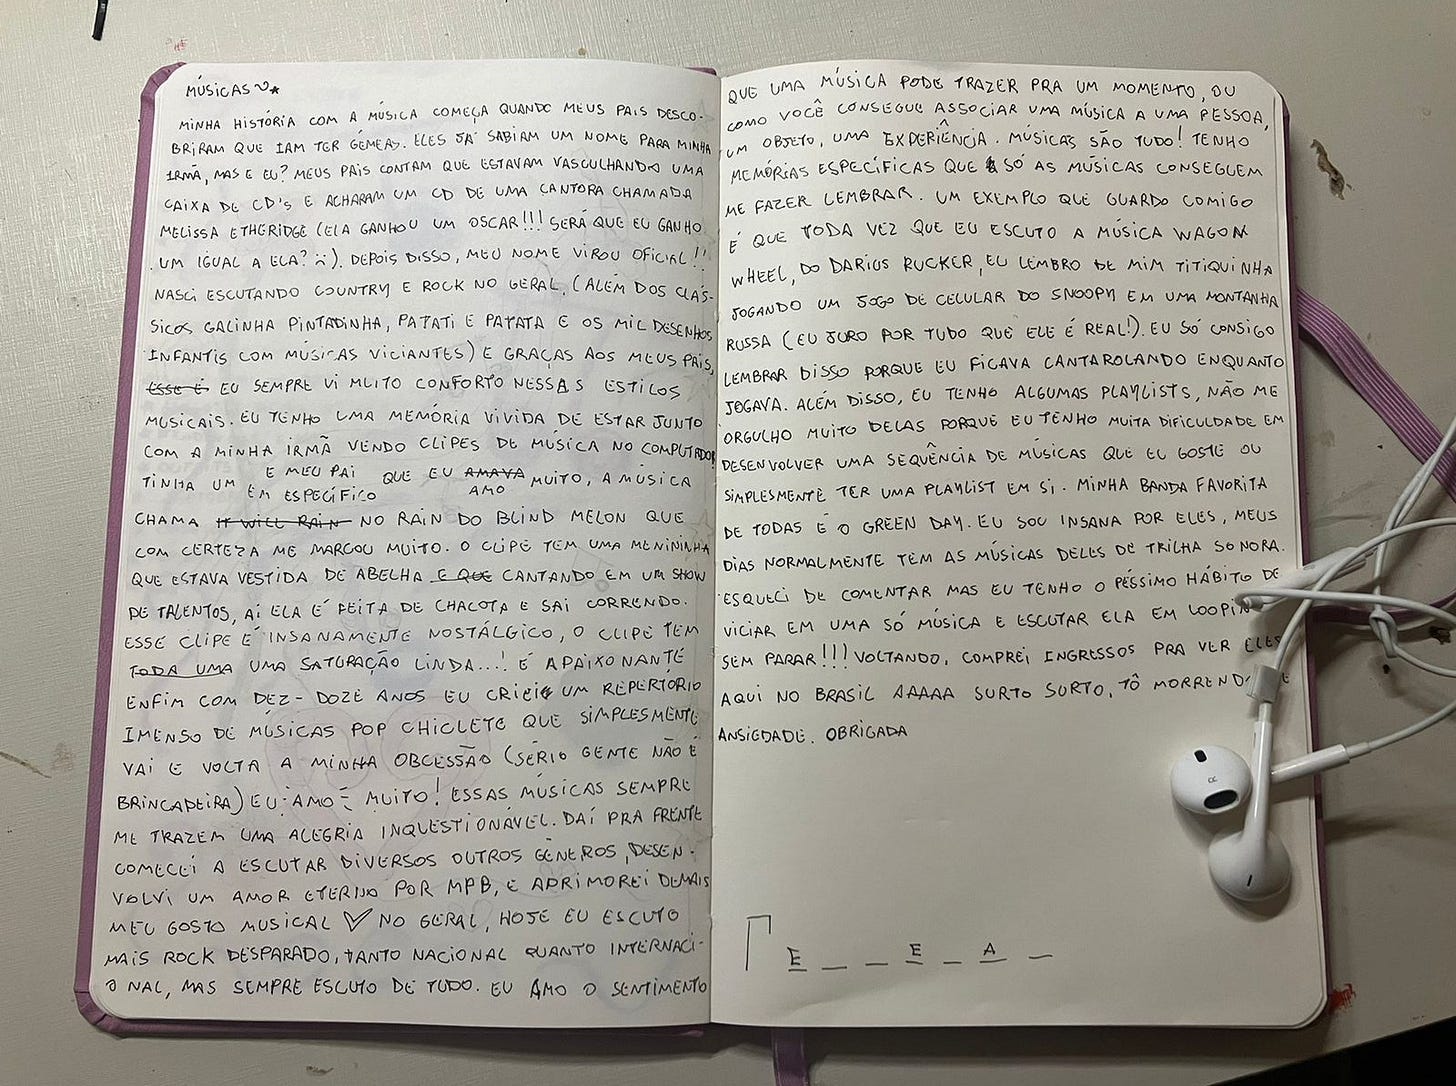 MÚSICAS
MINHA HISTÓRIA COM A MÚSICA COMEÇA QUANDO MEUS PAIS DESCO-
BRIRAM QUE IAM TER GÊMEAS. ELES JÁ SABIAM UM NOME PARA MINHA
IRMÃ, MAS E EU? MEUS PAIS CONTAM QUE ESTAVAM VASCULHANDO UMA
CAIXA DE CD'S E ACHARAM UM CD DE UMA CANTORA CHAMADA
MELISSA ETHERIDGE (ELA GANHOU UM OSCAR!!! SERÁ QUE EU GANHO
UM IGUAL A ELA? :). DEPOIS DISSO, MEU NOME VIROU OFICIAL!!
NASCI ESCUTANDO COUNTRY E ROCK NO GERAL, (ALÉM DOS CLÁS-
SICOS GALINHA PINTADINHA, PATATI E PATATA E OS MIL DESENHOS
INFANTIS COM MÚSICAS VICIANTES) E GRAÇAS AOS MEUS PAIS,
ESSE É EU SEMPRE VI MUITO CONFORTO NESSAS ESTILOS
MUSICAIS. EU TENHO UMA MEMÓRIA VIVIDA DE ESTAR JUNTO
COM A MINHA IRMÃ VENDO CLIPES DE MÚSICA NO COMPUTADOR!
E MEU PAI
TINHA UM EM ESPECÍFICO QUE EU AMAVA AMO MUITO, A MÚSICA
CHAMA IT WILL RAIN NO RAIN DO BLIND MELON QUE
COM CERTEZA ME MARCOU MUITO. O CLIPE TEM UMA MENININHA
QUE ESTAVA VESTIDA DE ABELHA E QUE CANTANDO EM UM SHOW
DE TALENTOS, AÍ ELA É FEITA DE CHACOTA E SAI CORRENDO.
ESSE CLIPE É INSANAMENTE NOSTÁLGICO, O CLIPE TEM
TODA UMA UMA SATURAÇÃO LINDA...! É APAIXONANTE
ENFIM COM DEZ-DOZE ANOS EU CRIEI UM REPERTORIO
IMENSO DE MÚSICAS POP CHICLETE QUE SIMPLESMENTE
VAI E VOLTA A MINHA OBCESSÃO (SÉRIO GENTE NÃO É
BRINCADEIRA) EU AMO MUITO! ESSAS MÚSICAS SEMPRE
ME TRAZEM UMA ALEGRIA INQUESTIONÁVEL. DAÍ PRA FRENTE
COMECEI A ESCUTAR DIVERSOS OUTROS GÊNEROS, DESEN-
VOLVI UM AMOR ETERNO POR MPB, E APRIMOREI DEMAIS
MEU GOSTO MUSICAL ♡ NO GERAL, HOJE EU ESCUTO
MAIS ROCK DESPARADO, TANTO NACIONAL QUANTO INTERNACI-
ONAL, MAS SEMPRE ESCUTO DE TUDO. EU AMO O SENTIMENTO
QUE UMA MÚSICA PODE TRAZER PRA UM MOMENTO, OU
COMO VOCÊ CONSEGUE ASSOCIAR UMA MÚSICA A UMA PESSOA,
UM OBJETO, UMA EXPERIÊNCIA. MÚSICAS SÃO TUDO! TENHO
MEMÓRIAS ESPECÍFICAS QUE SÓ AS MÚSICAS CONSEGUEM
ME FAZER LEMBRAR. UM EXEMPLO QUE GUARDO COMIGO
É QUE TODA VEZ QUE EU ESCUTO A MÚSICA WAGON
WHEEL, DO DARIUS RUCKER, EU LEMBRO DE MIM TITIQUINHA
JOGANDO UM JOGO DE CELULAR DO SNOOPY EM UMA MONTANHA
RUSSA (EU JURO POR TUDO QUE ELE É REAL!). EU SÓ CONSIGO
LEMBRAR DISSO PORQUE EU FICAVA CANTAROLANDO ENQUANTO
JOGAVA. ALÉM DISSO, EU TENHO ALGUMAS PLAYLISTS, NÃO ME
ORGULHO MUITO DELAS PORQUE EU TENHO MUITA DIFICULDADE EM
DESENVOLVER UMA SEQUÊNCIA DE MÚSICAS QUE EU GOSTE OU
SIMPLESMENTE TER UMA PLAYLIST EM SI. MINHA BANDA FAVORITA
DE TODAS É O GREEN DAY. EU SOU INSANA POR ELES, MEUS
DIAS NORMALMENTE TEM AS MÚSICAS DELES DE TRILHA SONORA.
ESQUECI DE COMENTAR MAS EU TENHO O PÉSSIMO HÁBITO DE
VICIAR EM UMA SÓ MÚSICA E ESCUTAR ELA EM LOOPIN
SEM PARAR!!! VOLTANDO, COMPREI INGRESSOS PRA VER ELES
AQUI NO BRASIL AAAAA SURTO SURTO, TÔ MORREND E
ANSIEDADE. OBRIGADA
E _ _ E _ A _